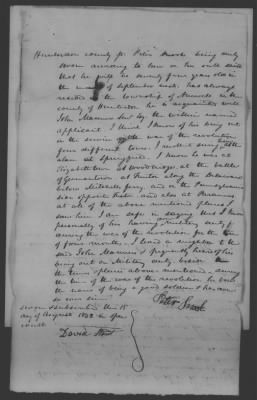 Hunterdon county ss. Peter Snook being duly
sworn according to law on his oath saith
that he will be seventy four years old in
the month of September next. has always
resided in the township of Amwell in the
county of Hunterdon he is acquainted with
John Manners sen. by the within named
applicant. I think I know of his being out
in the service in the war of the revolution
four different tours. I recollect seeing
him at Springfield. I know he was at
Elizabeth town and Woodbridge, at the battle
of Germantown at Trenton along the Delaware
below Mitchells ferry, and on the Pennsylvania
side opposite that and also at Paramus
at all of the above mentioned places I
saw him. I am safe in saying that I know
personally of his having Military duty
during the war of the revolution for the time
of four months. I lived a neighbor to the
said John Manners & frequently heard of his
being out on Military duty beside the
times & places above mentioned, during
the time of the war of the revolution he bore
the name of being a good soldier & has ever
so ever since
Peter Snook
Sworn & subscribed this
day of August 1832 in open
court
David